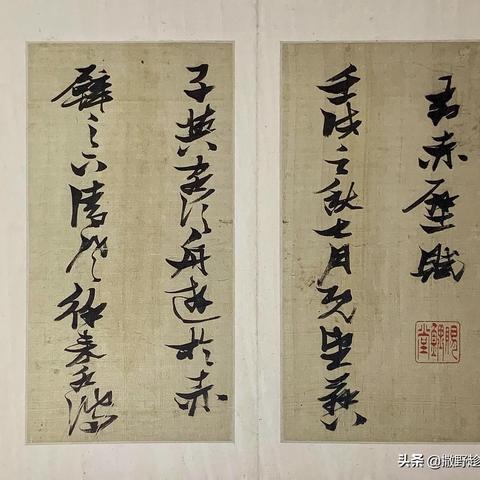 前赤壁賦
壬戌之秋七月既望蘇
子與客泛舟遊於赤
壁之下清風徐來水波
头条 @撒野趁